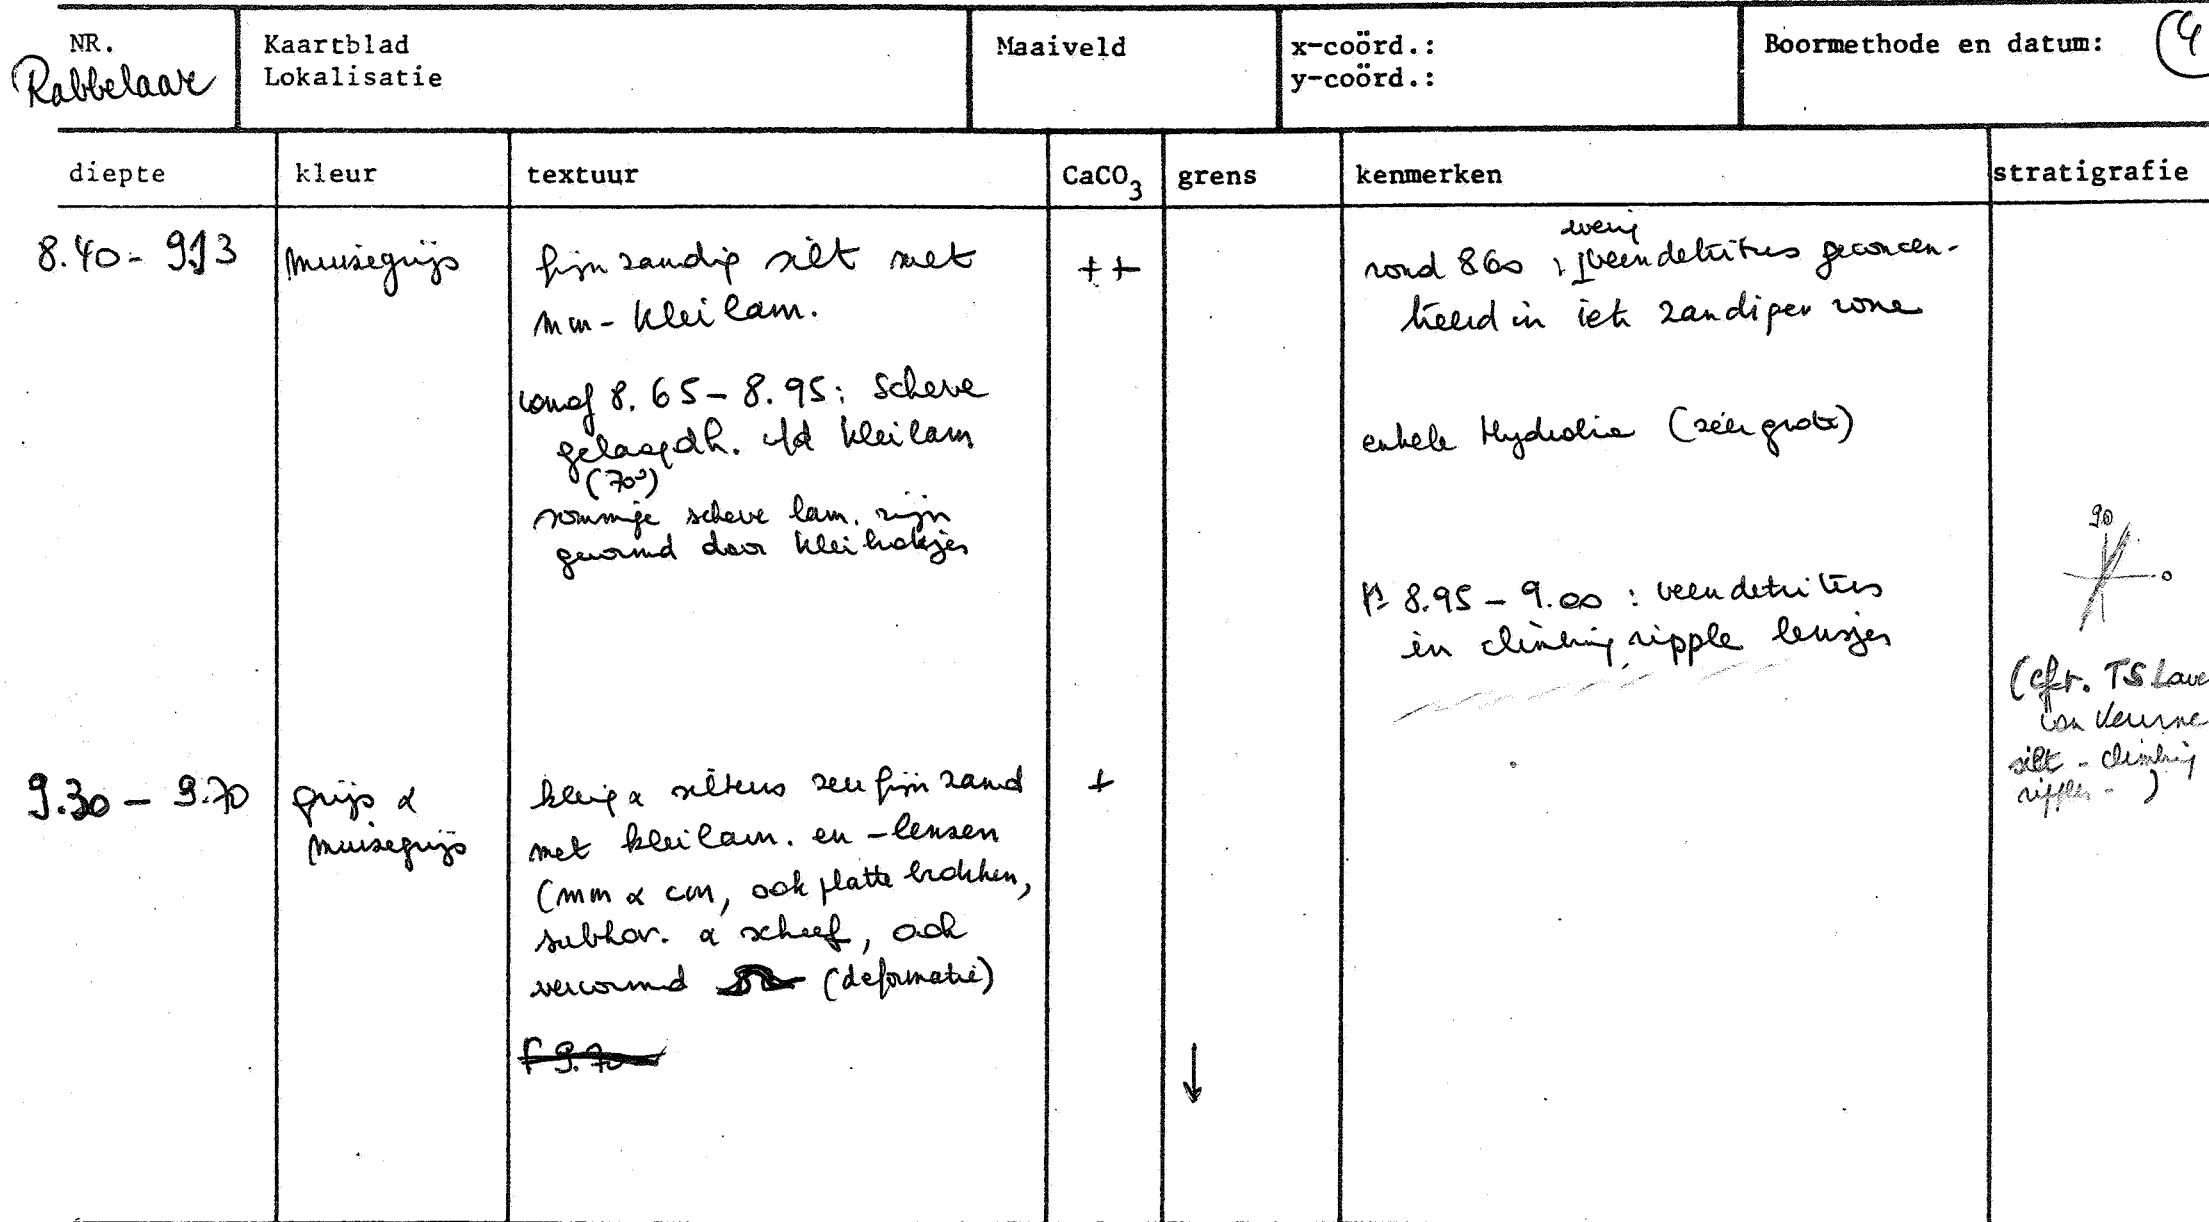 NR.
Rabbelaar
Kaartblad
Lokalisatie
Maaiveld
x-coörd.:
y-coörd.:
Boormethode en datum:
4
diepte
kleur
textuur
CaCO3
grens
kenmerken
stratigrafie
8.40 - 9.13
muisegrijs
fijn zandig silt met
mm - klei lam.
vanaf 8.65 - 8.95: Scheve
gelaagdh. v/d kleilam
(70°)
sommige scheve lam. zijn
gevormd door kleibrokjes
++
weinig
rond 860 : veendetritus geconcen-
treerd in iets zandiger zone
enkele Hydrobia (zéér grote)
8.95 - 9.00 : veendetritus
in climbing ripple lensjes
90
0
(cfr. TS
van Veurne
silt - climbing
ripples - )
9.30 - 9.70
grijs à
muisegrijs
kleiig à silteus zeer fijn zand
met kleilam. en -lensen
(mm à cm, ook platte brokken,
subhor. à scheef, ook
vervormd (deformatie)
+
9.70
↓